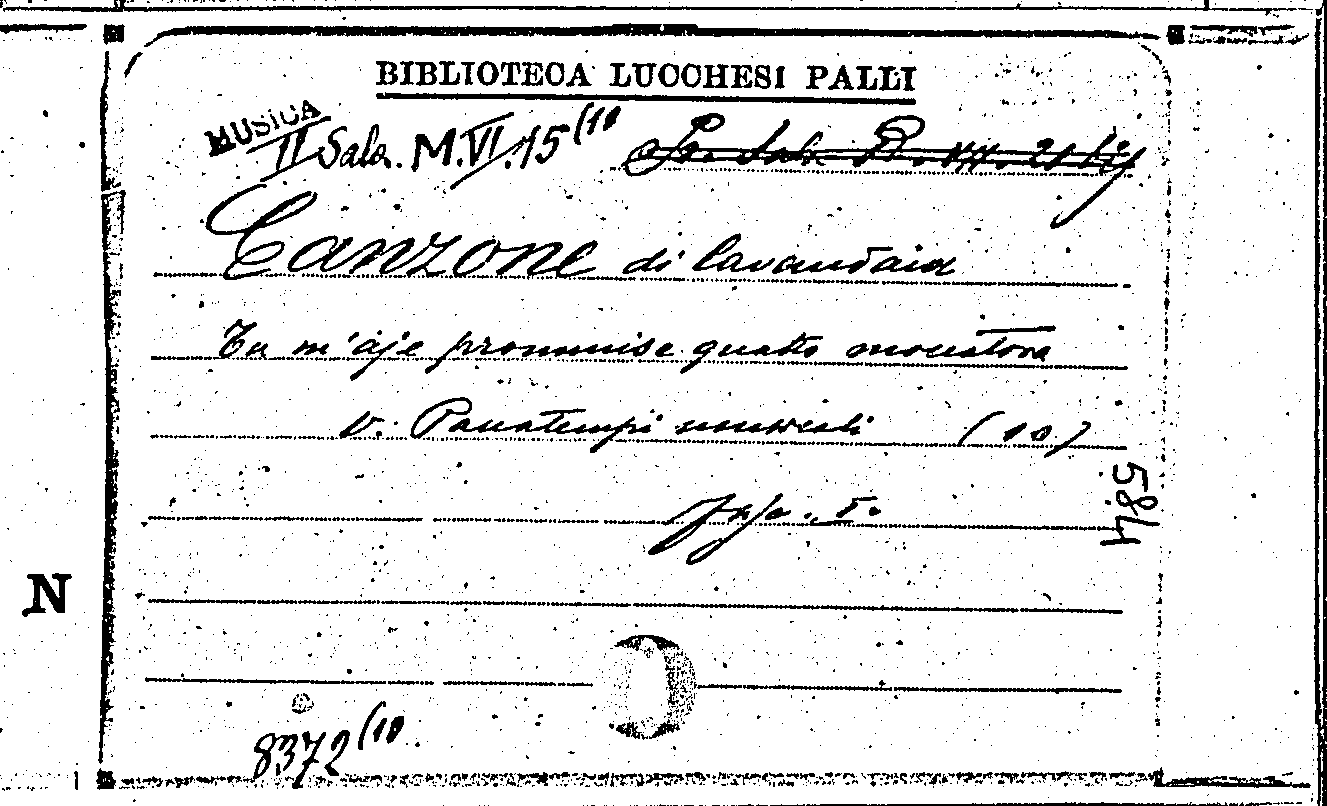 BIBLIOTECA LUCCHESI PALLI
MUSICA
II Sala. M.VI.15(10
Canzone di lavandaia
Tu m'aje prommise quatto moccatora
v. Passatempi musicali (10)
584
N
8372(10